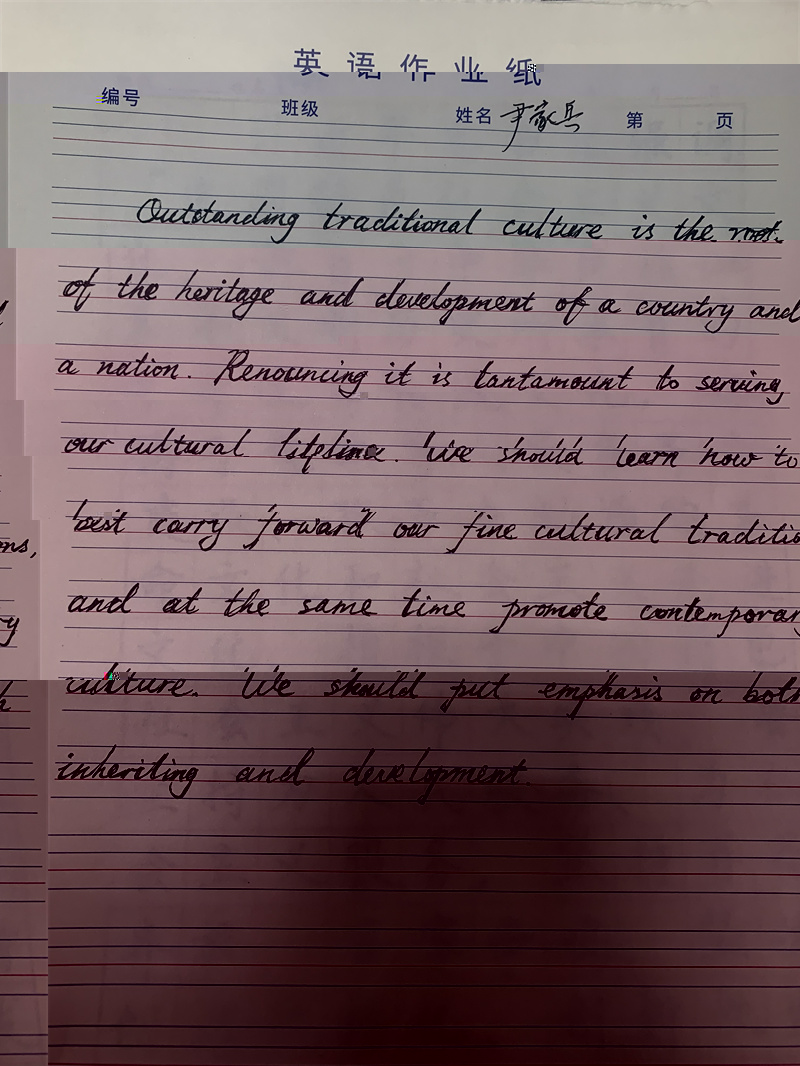 英语作业纸
编号 班级 姓名 尹家兵 第 页
Outstanding traditional culture is the root
of the heritage and development of a country and
a nation. Renouncing it is tantamount to serving
our cultural lifeline. We should learn how to
best carry forward our fine cultural traditio
and at the same time promote contemporary
culture. We should put emphasis on both
inheriting and development.
ons,
ry